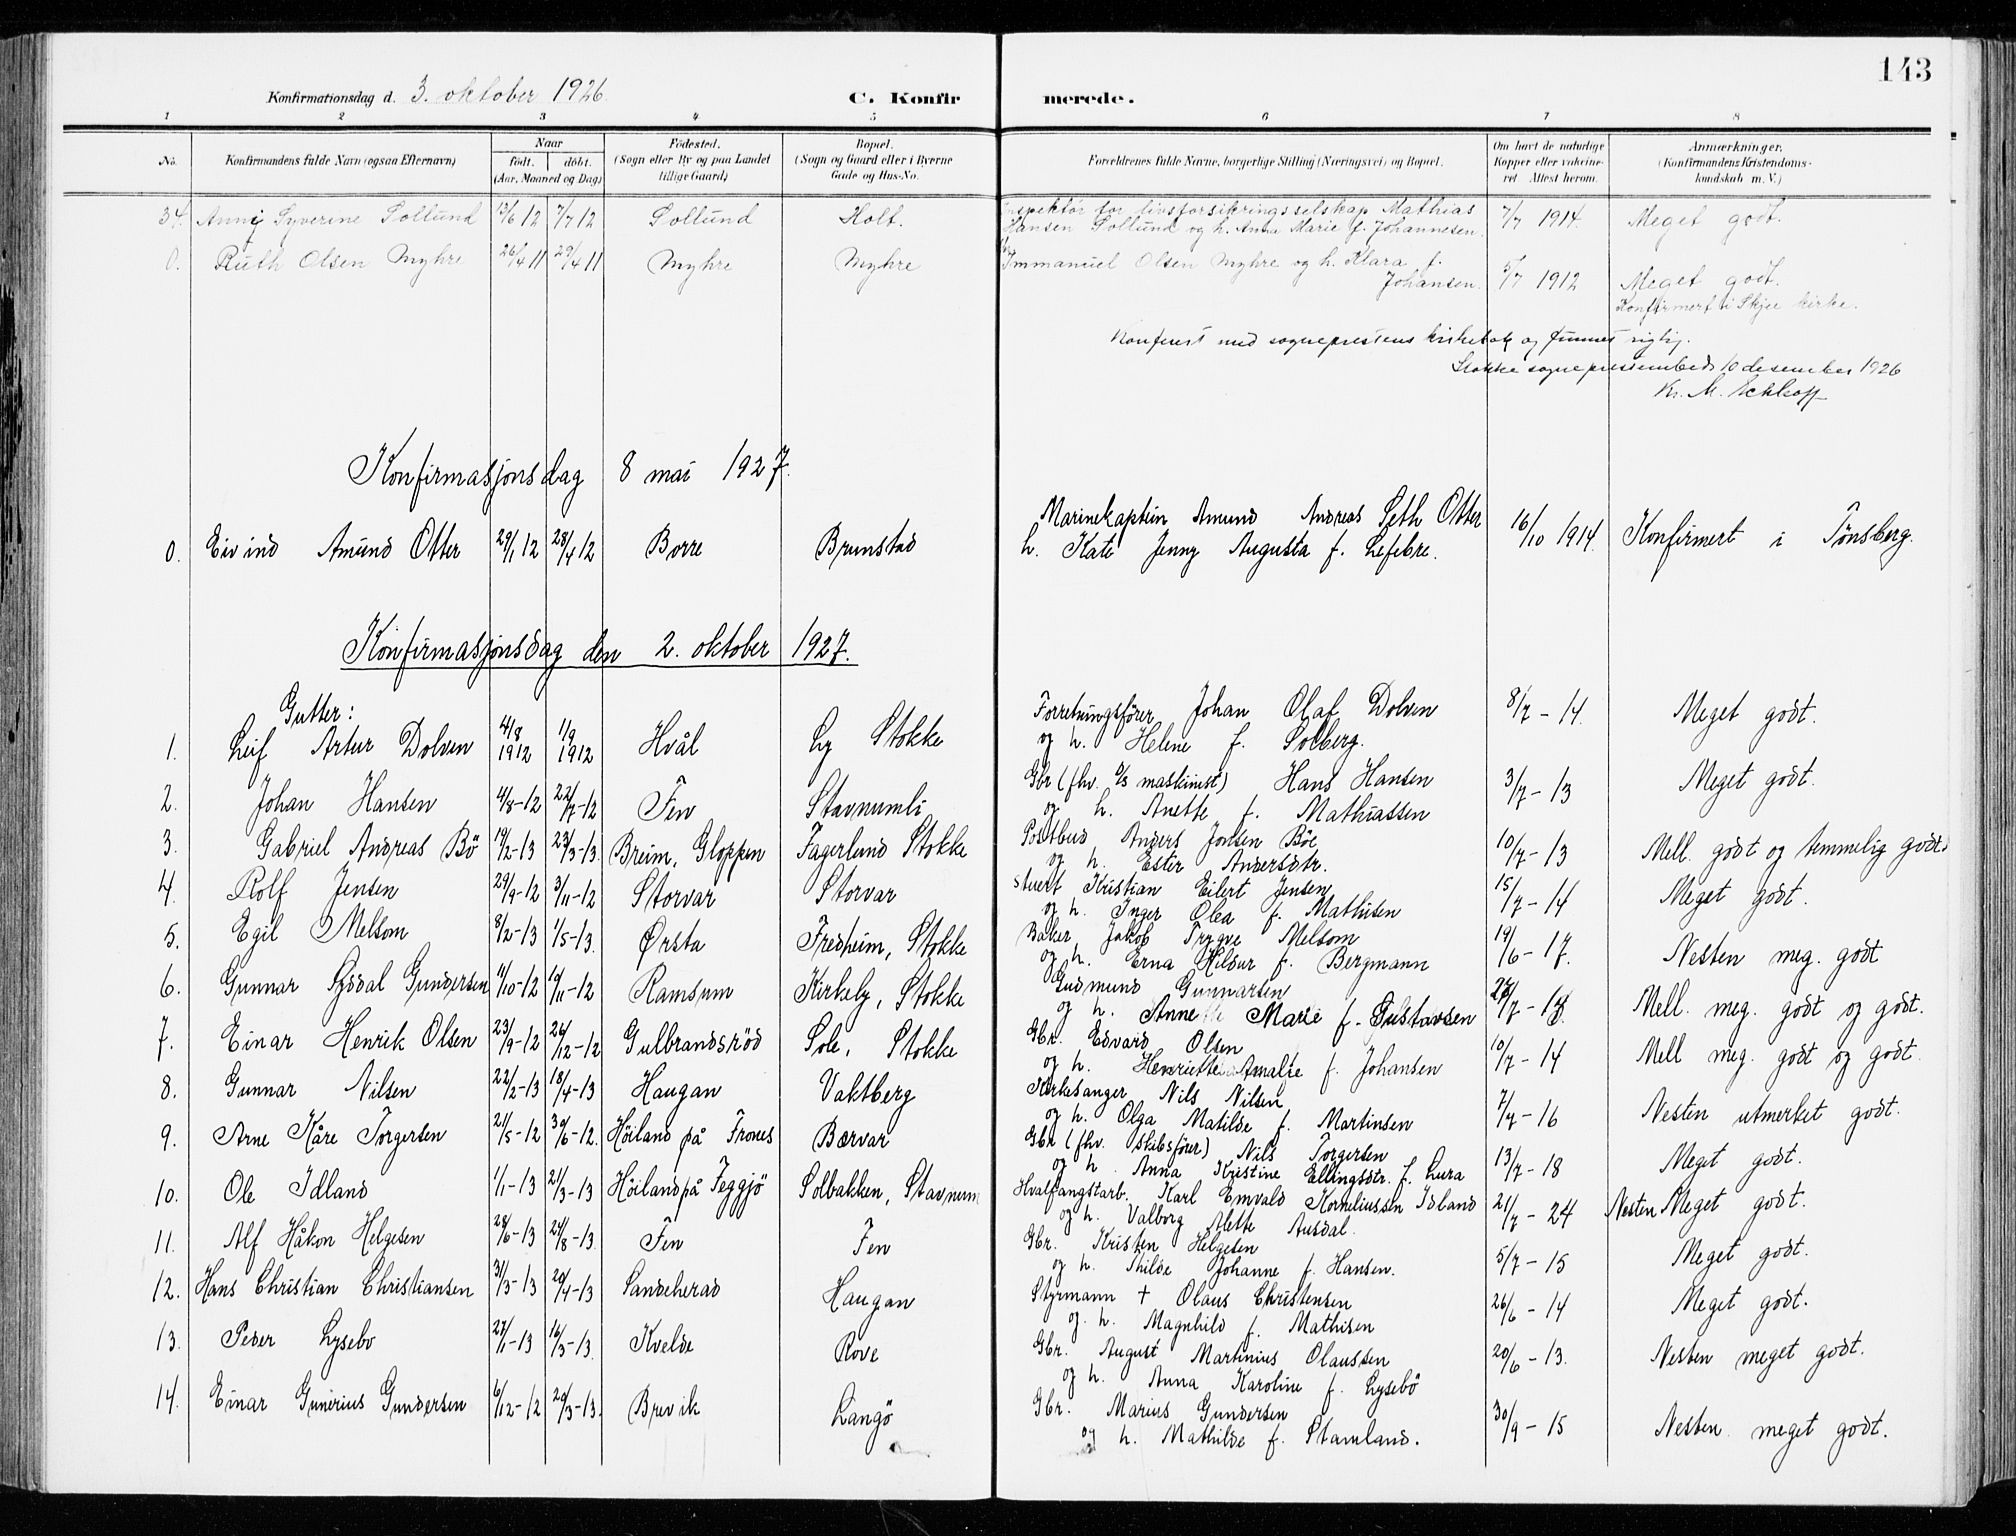 143
Konfirmationsdag d. 3. oktober 1926.
C. Konfirmerede.
1 2 3 4 5 6 7 8
No. Konfirmandens fulde Navn (ogsaa Efternavn) Naar født. døbt. (Aar, Maaned og Dag) Fødested. (Sogn eller By og paa Landet tillige Gaard) Bopæl. (Sogn og Gaard eller i Byerne Gade og Hus-No. Forældrenes fulde Navne, borgerlige Stilling (Næringsvei) og Bopæl. Om havt de naturlige Kopper eller vakcineret. Attest herom. Anmærkninger. (Konfirmandens Kristendomskundskab m. V.)
34. Anny Syverine Sollund 13/6 12 7/7 12 Sollund Holt. Inspektør for livsforsikringsselskap Mathias 7/7 1914. Meget godt.
Hansen Sollund og h. Anna Marie f. Johannesen.
0. Ruth Olsen Myhre 26/4 11 29/4 11 Myhre Myhre Immanuel Olsen Myhre og h. Klara f. 5/7 1912 Meget godt.
Johansen. Konfirmert i Skjee kirke.
Konferert med sogneprestens kirkebok og funnet riglig.
Stokke sogneprestembed 10 desember 1926
Kr. M. Eckhoff
Konfirmasjonsdag 8 mai 1927.
0. Eivind Amund Otter 29/1 12 28/4 12 Borre Brunstad Marinekaptein Amund Andreas Seth Otter 16/10 1914. Konfirmert i Tønsberg.
h. Kate Jenny Augusta f. Lefebre.
Konfirmasjonsdag den 2. oktober 1927.
Gutter:
1. Leif Artur Dolven 4/8 1912 1/9 1912 Hvål Ly Stokke Forretningsfører Johan Olaf Dolven 8/7 - 14. Meget godt.
og h. Helene f. Solberg.
2. Johan Hansen 4/8-12 22/7-12 Fen Stavnumli Gbr (fhv. D/S maskinist) Hans Hansen 3/7 - 13 Meget godt.
og h. Anette f. Mathiassen
3. Gabriel Andreas Bö 19/2-13 23/3-13 Breim, Gloppen Fagerlund Stokke Postbud Anders Jonsen Böe 10/7 - 13 Mell. godt og temmelig godt.
og h. Ester Andersdtr.
4. Rolf Jensen 29/9-12 3/11-12 Storvar Storvar Stuert Kristian Eilert Jensen 15/7 - 14 Meget godt.
og h. Inger Olea f. Mathisen
5. Egil Melsom 8/2-13 1/5-13. Ørsta Fredheim, Stokke Baker Jakob Trygve Melsom 19/6 - 17. Nesten meg. godt
og h. Erna Hildur f. Bergmann
6. Gunnar Sydal Gundersen 11/10-12 10/11-12 Ramsum Kirkely, Stokke Gudmund Gunnarsen Mell. meg. godt og godt.
og h. Anne Marie f. Gustavsen
7. Einar Henrik Olsen 23/9-12 26/12-12 Gulbrandsröd Sole, Stokke Gbr. Edvard Olsen 10/7 - 14 Mell meg. godt og godt.
og h. Henriette Amalie f. Johansen
8. Gunnar Nilsen 22/2-13 18/4-13 Haugan Vaktberg Kirkesanger Nils Nilsen 7/7 - 16 Nesten utmerket godt.
og h. Olga Matilde f. Martinsen
9. Arne Kåre Torgersen 21/5-12 30/6-12. Höiland på Frones Bærvar Gbr (fhv. Skibsfører) Nils Torgersen 13/7 - 18 Meget godt.
og h. Anna Kristine Ellingsdtr. f. Lura
10. Ole Idland 1/1-13 21/3-13 Höiland på Feggjö Solbakken, Stavnum Hvalfangstarb. Karl Emvald Korneliussen Idland 21/7 - 24 Nesten Meget godt.
og h. Valborg Alette Ausdal.
11. Alf Håkon Helgesen 28/6-13 24/8-13. Fen Fen Gbr. Kristen Helgesen 5/7 - 15 Meget godt.
og h. Hilda Johanne f. Hansen.
12. Hans Christian Christiansen 31/3-13 20/4-13 Sandeherad Haugan Styrmann + Olaus Christensen 26/6 - 14 Meget godt.
og. h. Magnhild f. Mathisen
13. Peder Lysebo 23/1-13 16/3-13. Kvelde Rove Gbr. August Martinius Olaussen 20/6 - 13. Nesten meget godt.
og h. Anna Karoline f. Lysebö
14. Einar Gunerius Gundersen 6/12-12 29/3-13. Brevik Langö Gbr. Marius Gundersen 30/9 - 15 Nesten meget godt.
og h. Mathilde f. Stamland.